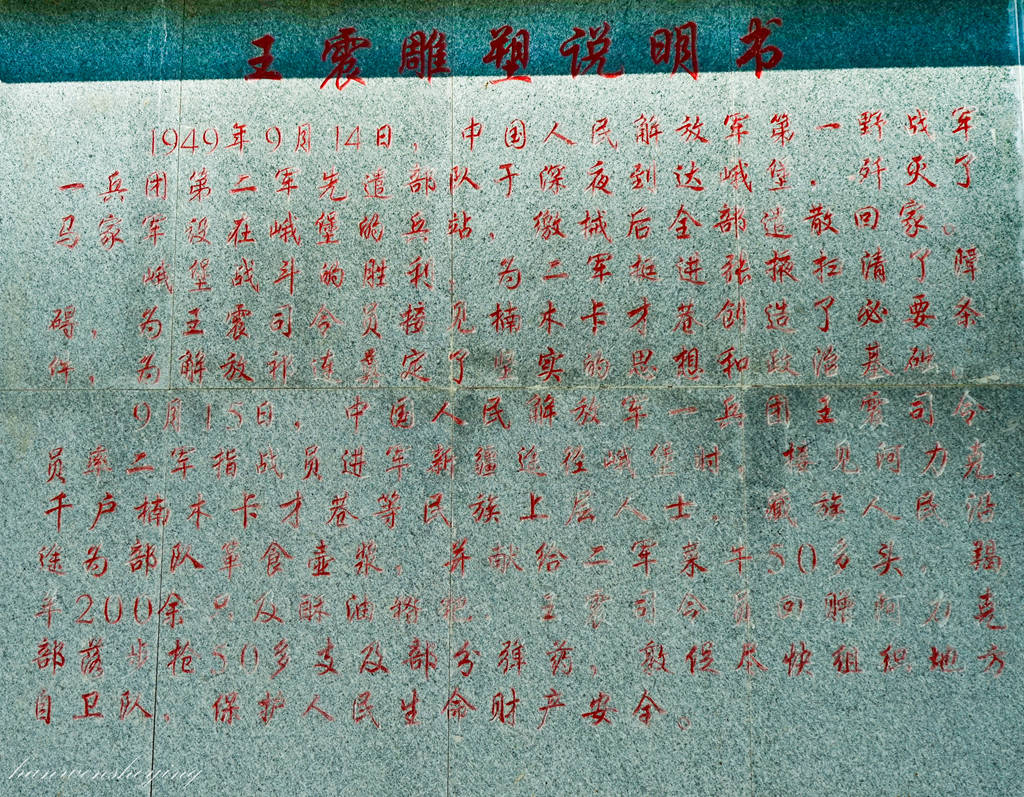 王震雕塑说明书
1949年9月14日，中国人民解放军第一野战军
一兵团第二军先遣部队于深夜到达峨堡，歼灭了
马家军设在峨堡的兵站，缴械后全部遣散回家。
峨堡战斗的胜利，为二军挺进张掖扫清了障
碍，为王震司令员接见楠木卡才巷创造了必要条
件，为解放祁连奠定了坚实的思想和政治基础。
9月15日，中国人民解放军一兵团王震司令
员率二军指战员进军新疆途径峨堡时，接见阿力克
千户楠木卡才巷等民族上层人士，藏族人民沿
途为部队箪食壶浆，并献给二军菜牛50多头，羯
羊200余只及酥油糌粑，王震司令员回赠阿力克
部落步枪50多支及部分弹药，敦促尽快组织地方
自卫队，保护人民生命财产安全。
hanwensheying